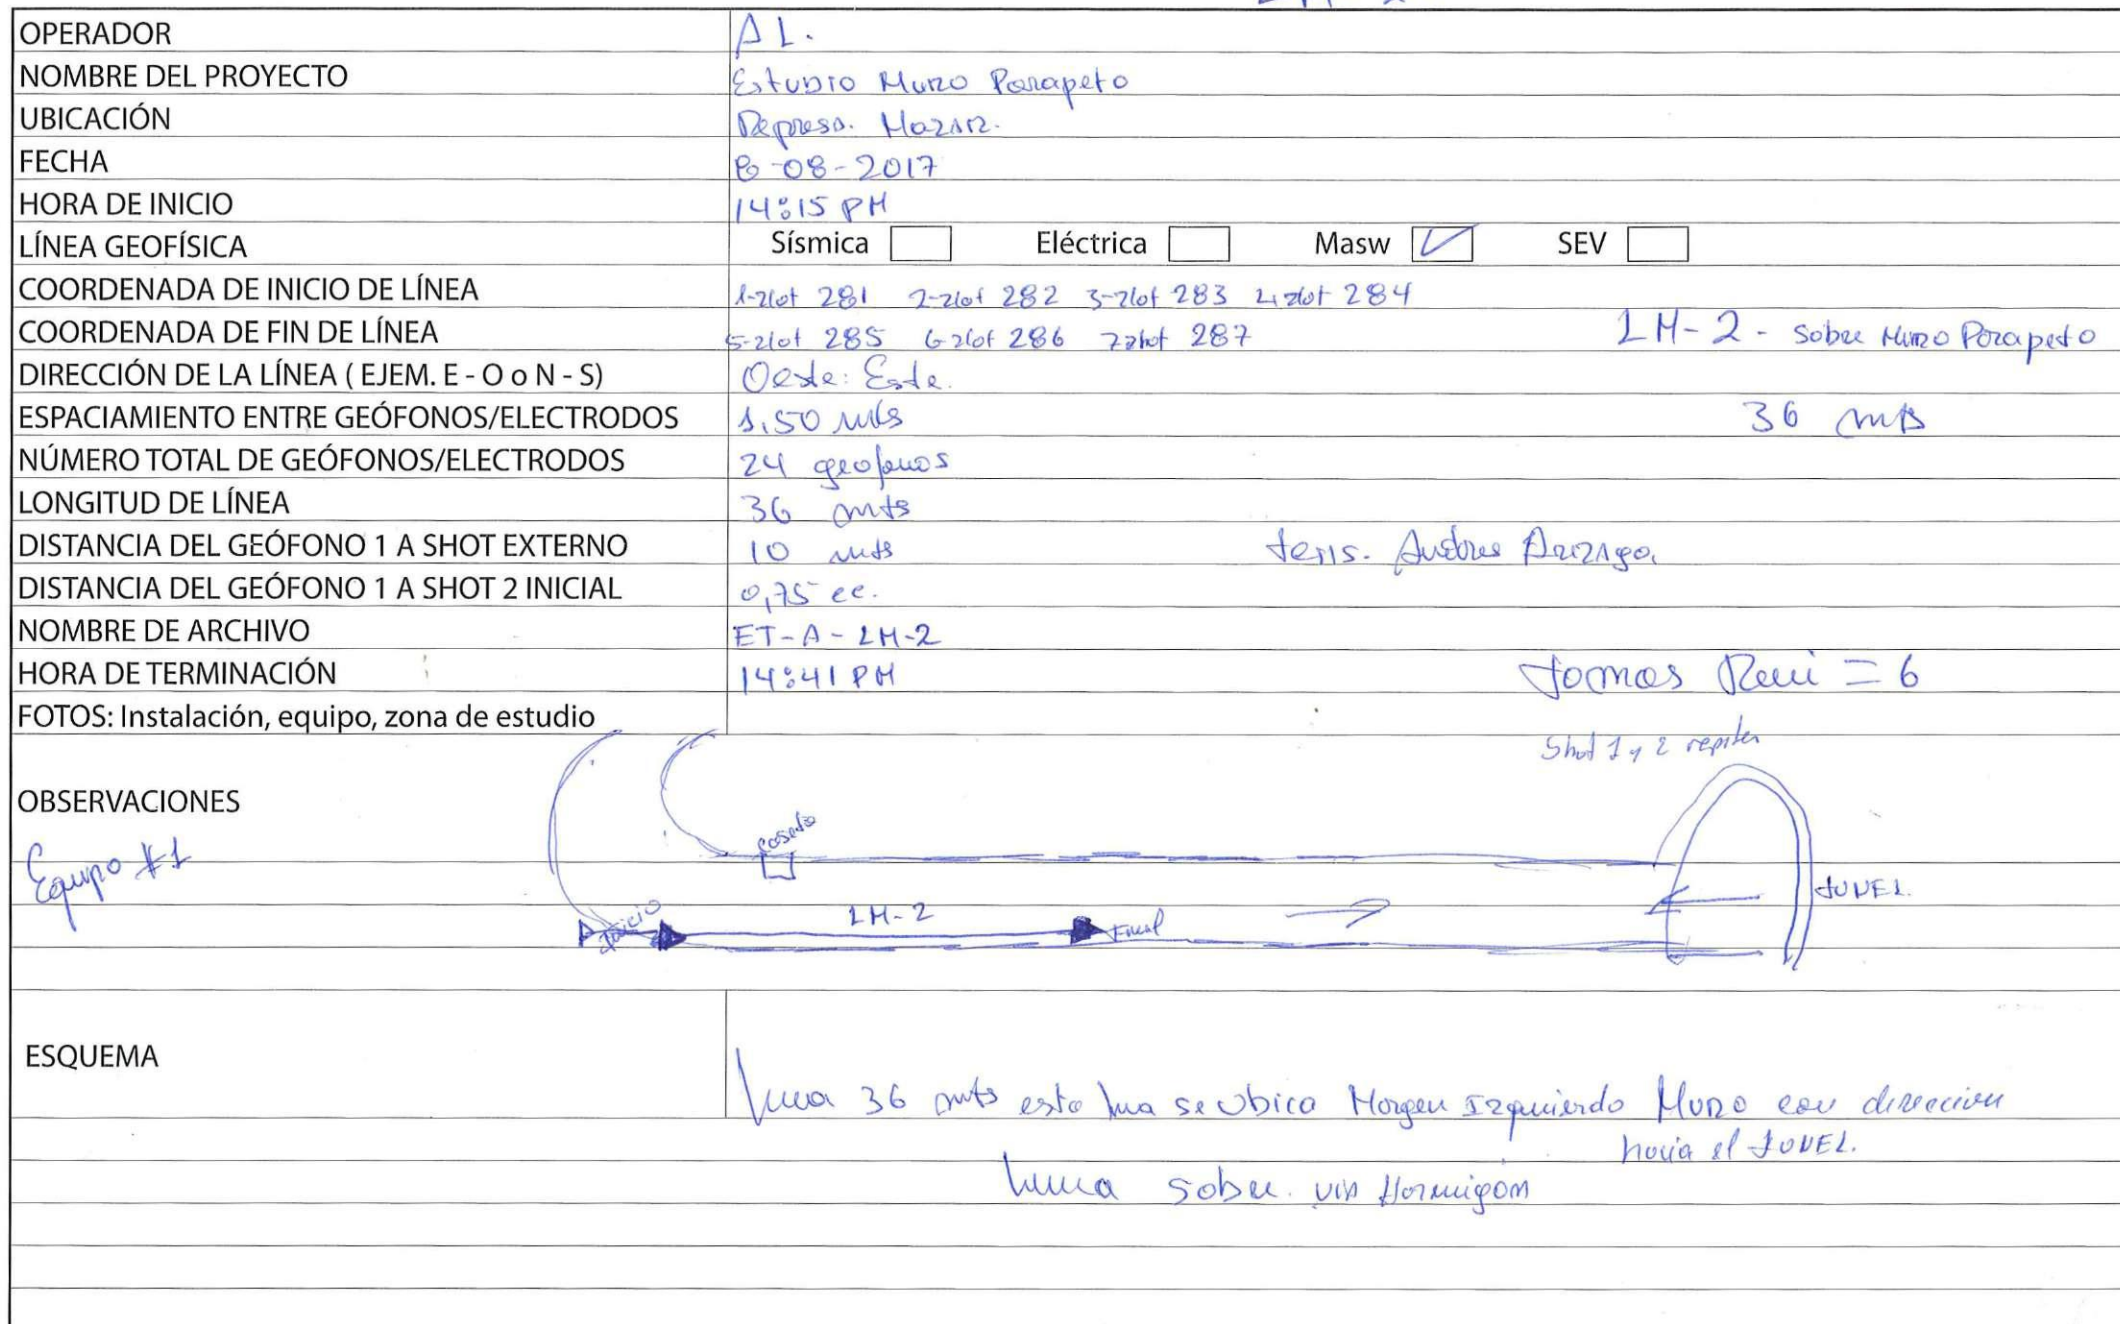 OPERADOR AL.
NOMBRE DEL PROYECTO Estudio Muro Parapeto
UBICACIÓN Represa. Mazar.
FECHA 8-08-2017
HORA DE INICIO 14:15 PM
LÍNEA GEOFÍSICA Sísmica Eléctrica Masw SEV
COORDENADA DE INICIO DE LÍNEA 281 282 283 284
COORDENADA DE FIN DE LÍNEA 285 286 287 LM-2 - Sobre Muro Parapeto
DIRECCIÓN DE LA LÍNEA ( EJEM. E - O o N - S) Oeste: Este.
ESPACIAMIENTO ENTRE GEÓFONOS/ELECTRODOS 1,50 mts 36 mts
NÚMERO TOTAL DE GEÓFONOS/ELECTRODOS 24 geofonos
LONGITUD DE LÍNEA 36 mts
DISTANCIA DEL GEÓFONO 1 A SHOT EXTERNO 10 mts
DISTANCIA DEL GEÓFONO 1 A SHOT 2 INICIAL 0,75
NOMBRE DE ARCHIVO ET-A-LM-2
HORA DE TERMINACIÓN 14:41 PM Tomas = 6
FOTOS: Instalación, equipo, zona de estudio
Shot 1 y 2 repiten
OBSERVACIONES
caseta
Equipo #1
TUNEL.
Inicio LM-2 Final
ESQUEMA
linea 36 mts esta se Ubica Margen Izquierdo Muro con direccion
hacia el TUNEL.
linea sobre via Hormigon